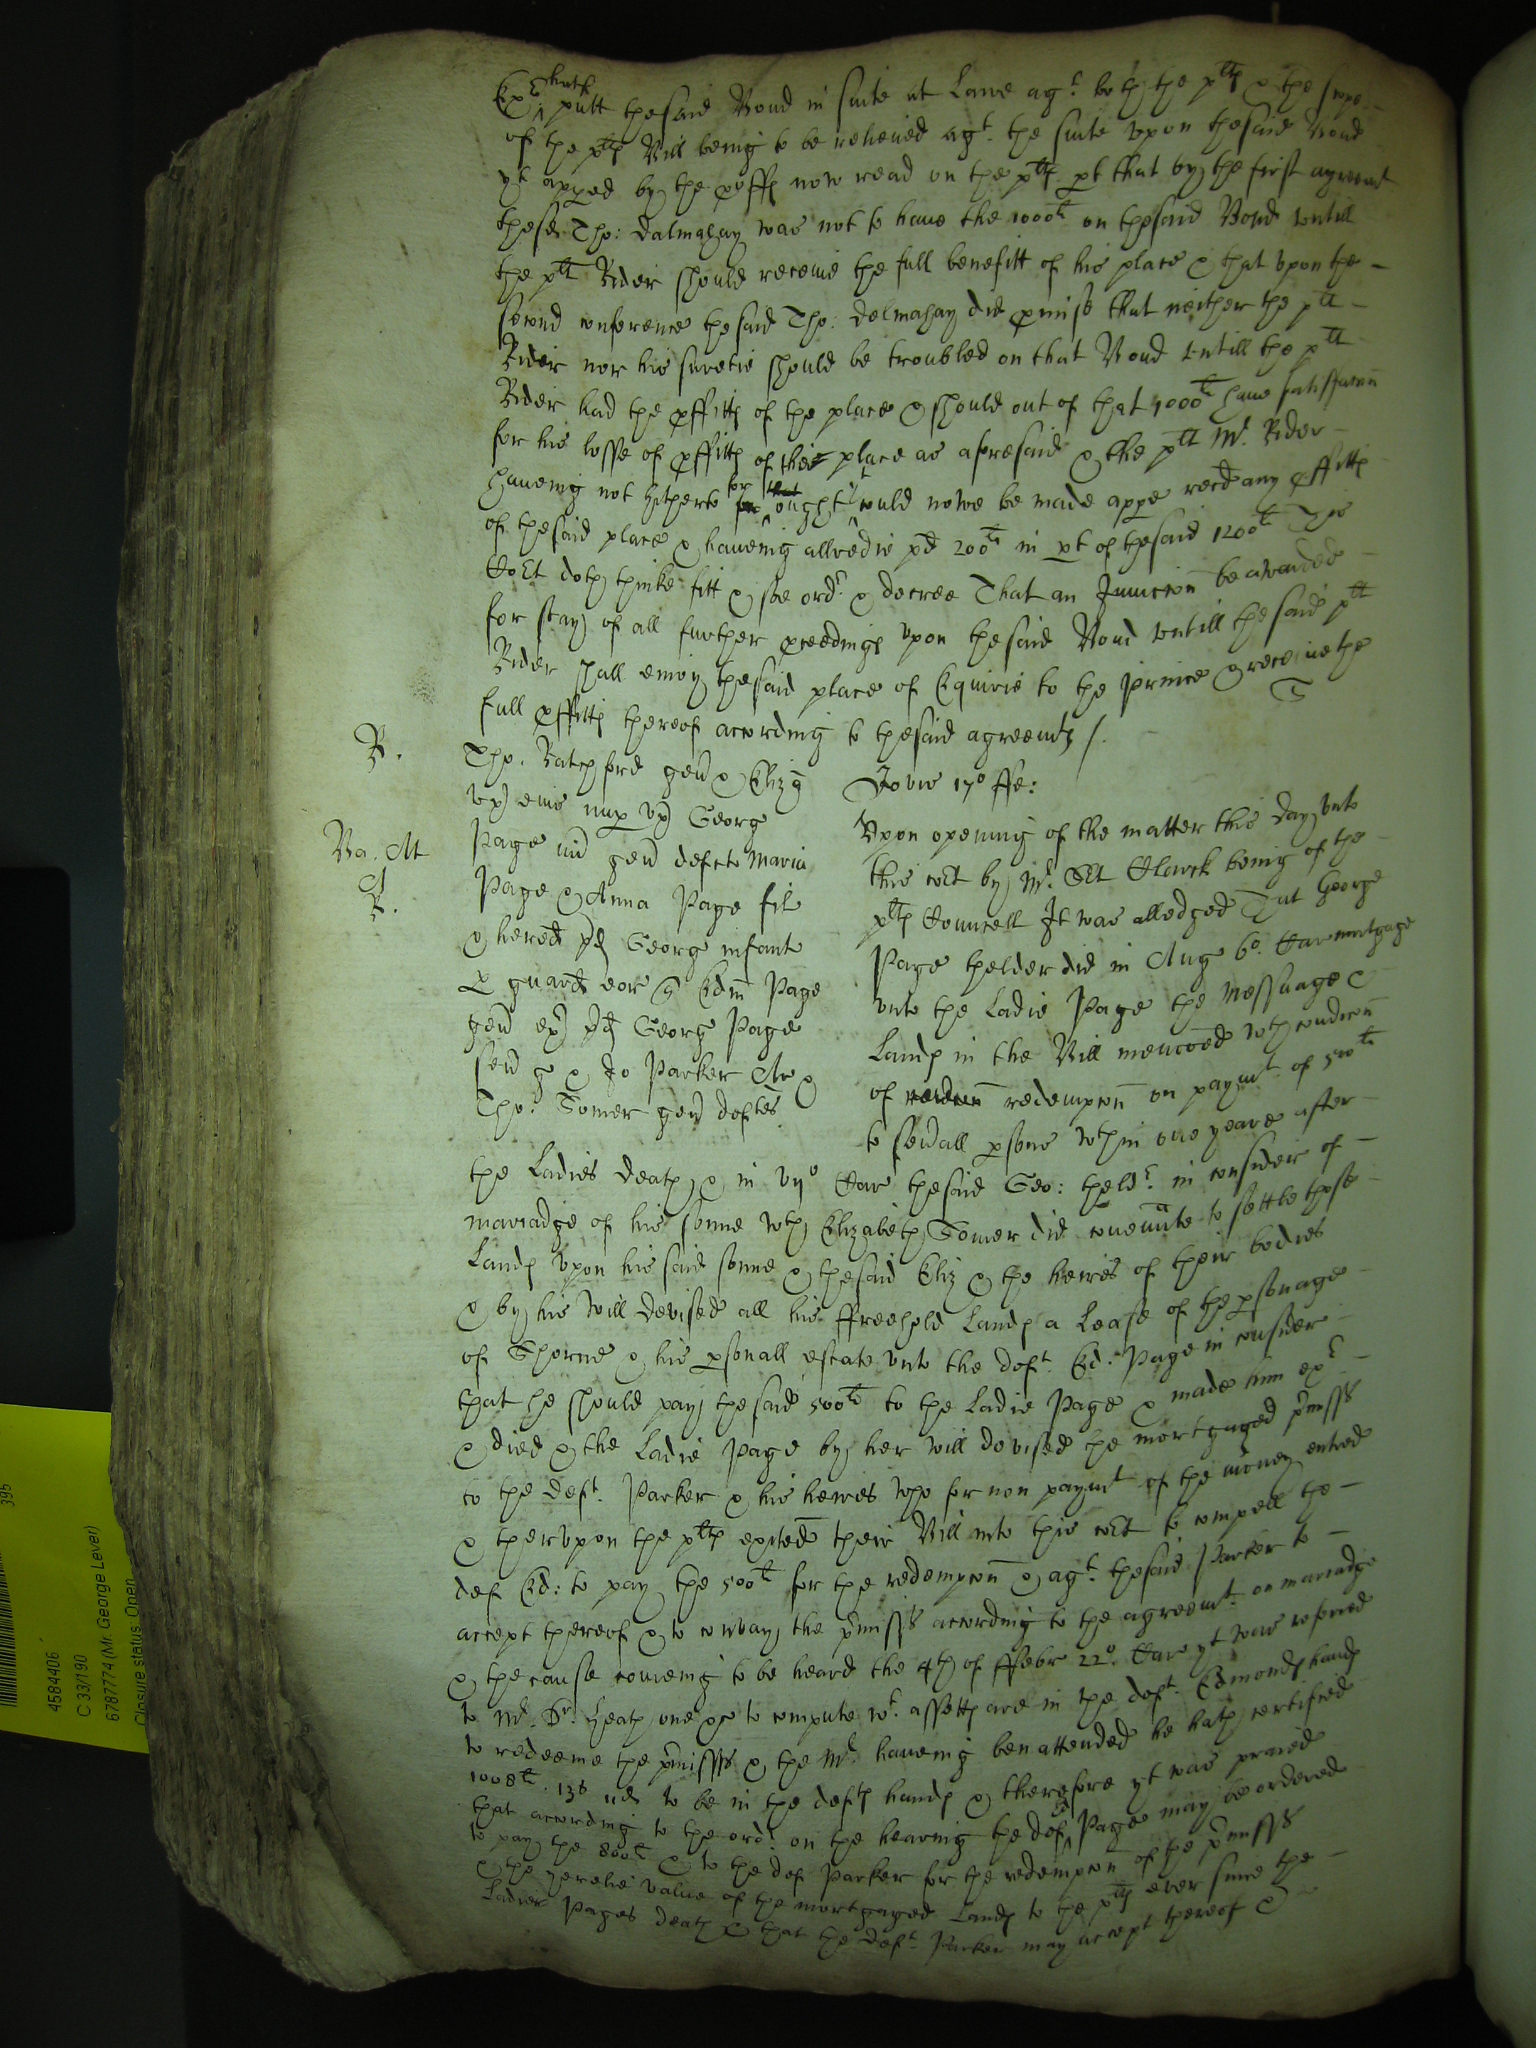 Ex:r hath putt thesaid Bond in suite at Lawe agt. both the pltes & the scope
of the pltes Bill being to be releived agt. the suite vpon thesaid Bond
yt appeed by the proffes now read on the pltes pt that by the first agreemt
thesd Tho: Dalmahay was not to haue the 1000li on thesaid Bond vntill
the plt Rider should receiue the full benefitt of his place & that vpon the
second conference thesaid Tho: Delmahay did pmise that neither the plt
Rider nor his suretie should be troubled on that Bond vntill the plt
Rider had the pffittes of the place & should out of that 1000li haue satisfaccon
for his losse of pffittes of this place as aforesaid & the plt Mr. Rider
haueing not hitherto for ought yt could nowe be made appe recd any pffittes
of thesaid place & haueing allredie pd 200li in pt of thesaid 1200li This
Cort doth thinke fitt & soe ordr. & decree That an Iniunccon be awarded
for stay of all further pceedinges vpon thesaid Bond vntill the said plt
Rider shall enioy thesaid place of Equirie to the Prince & receiue the
full pffittes thereof according to thesaid agreemtes /.
R.
Tho. Ratchford gen & Eliz
vx eius nup vx George
Page iun gen defcto Maria
Page & Anna Page fil
& hered pd George infant
p guard eor Edm Page
gen ex pd George Page
sen & Jo Parker Ar &
Tho: Somer gen deftes.
Va. At
R.
Jovis 17o ffe:
Vpon opening of the matter this day vnto
this cort by Mr. Clarck being of the
pltes Councell It was alledged That George
Page thelder did in Aug 6o. Car mortgage
vnto the Ladie Page the Messuage &
Landes in the Bill mencoed wth condicon
of redempcon on paymt of 500li
to seuall psons wthin one yeare after
the Ladies death & in vijo Car thesaid Geo: theldr. in consider of
marriadge of his sonne wth Elizabeth Somer did covennte to settle those
Landes vpon his said sonne & thesaid Eliz & the heires of their bodies
& by his Will devised all his ffreehold Landes a Lease of the psonage
of Thorne & his psonall estate vnto the deft. Ed: Page in consider
that he should pay thesaid 500li to the Ladie Page & made him exr
& died & the Ladie Page by her will devised the mortgaged pmisss
to the deft. Parker & his heires who for non paymt of the money entred
& thervpon the pltes exited their Bill into this cort to compell the
def Ed: to pay the 500li for the redempcon & agt. thesaid Parker to
accept thereof & to convay the pmisss according to the agreemt. on marriadge
& the cause comeing to be heard the 4th of ffebr 22o. Car yt was referred
to Mr. Dr. Heath one &c to compute wt. assettes are in the deft. Edmondes handes
to redeeme the pmisses & the Mr. haueing ben attended he hath certified
1008li. 13s 11d to be in the deftes handes & therefore yt was praied
that according to the ordr. on the hearing the def Ed Page may be ordered
to pay the 800li & to the def Parker for the redempcon of the pmisss
& the yerelie value of the mortgaged Landes to the pltes ever since the
Ladies Pages death & that the deft. Parker may accept thereof &
395
4584406
C 33/190
6787774 (Mr George Lever)
Closure status: Open